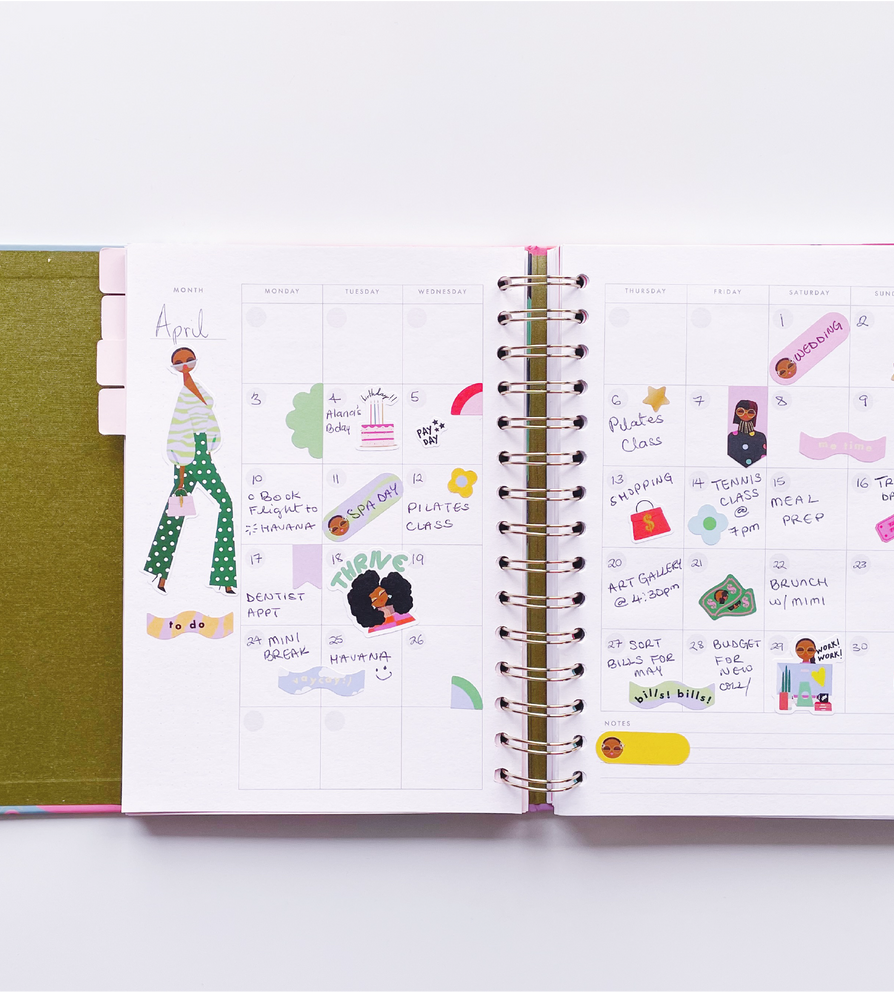 MONTH
April
to do
MONDAY TUESDAY WEDNESDAY
3
4 birthday!!
Alana's
Bday
5
PAY
DAY
10
Book
Flight to
HAVANA
11
SPA DAY
12
PILATES
CLASS
17
DENTIST
APPT
18
THRIVE
19
24 MINI
BREAK
25
HAVANA
26
THURSDAY FRIDAY SATURDAY SUN
1
WEDDING
2
6
Pilates
Class
7
8
me time
9
13
SHOPPING
$
14 TENNIS
CLASS
@
7pm
15
MEAL
PREP
16
20
ART GALLERY
@ 4:30pm
21
22
BRUNCH
W/ MIMI
23
27 SORT
BILLS FOR
MAY
bills! bills!
28 BUDGET
FOR
NEW
29
WORK!
WORK!
30
NOTES